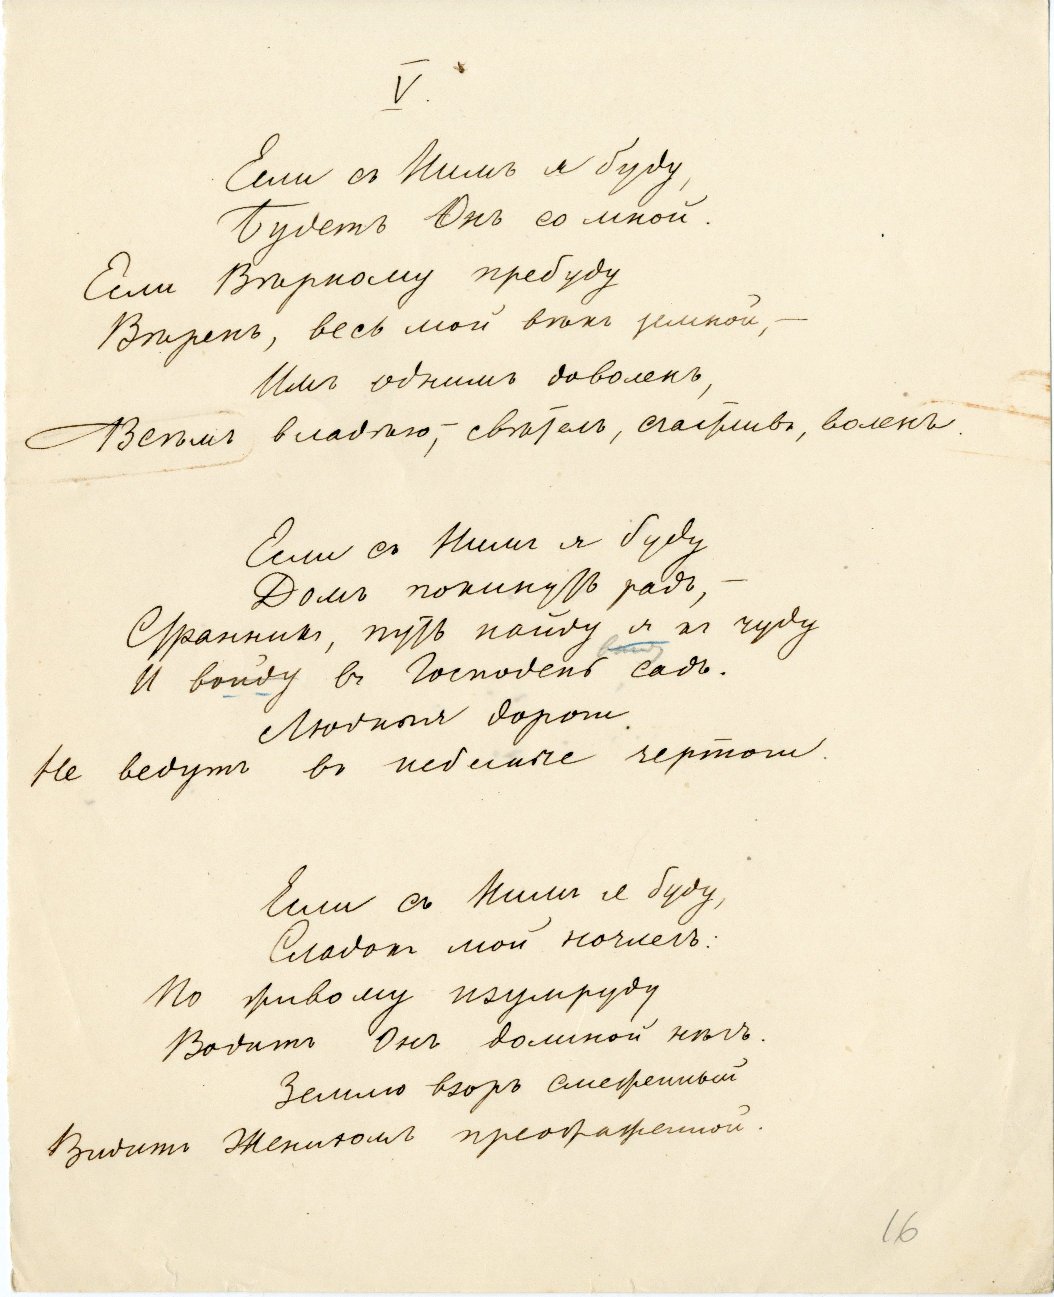 V.
Если съ Нимъ я буду,
Будетъ Онъ со мной.
Если Вѣрному пребуду
Вѣренъ, весь мой вѣкъ земной,—
Имъ однимъ доволенъ,
Всѣмъ владѣю,— свѣтелъ, счастливъ, воленъ.
Если съ Нимъ я буду
Домъ покинуть радъ,—
Странникъ, путь найду я къ чуду
И войду въ Господень садъ.
Людныя дороги
Не ведутъ въ небесные чертоги.
Если съ Нимъ я буду,
Сладокъ мой ночлегъ:
По живому изумруду
Водитъ Онъ долиной нѣгъ.
Землю взоръ смеженный
Видитъ Женихомъ преображенной.
16